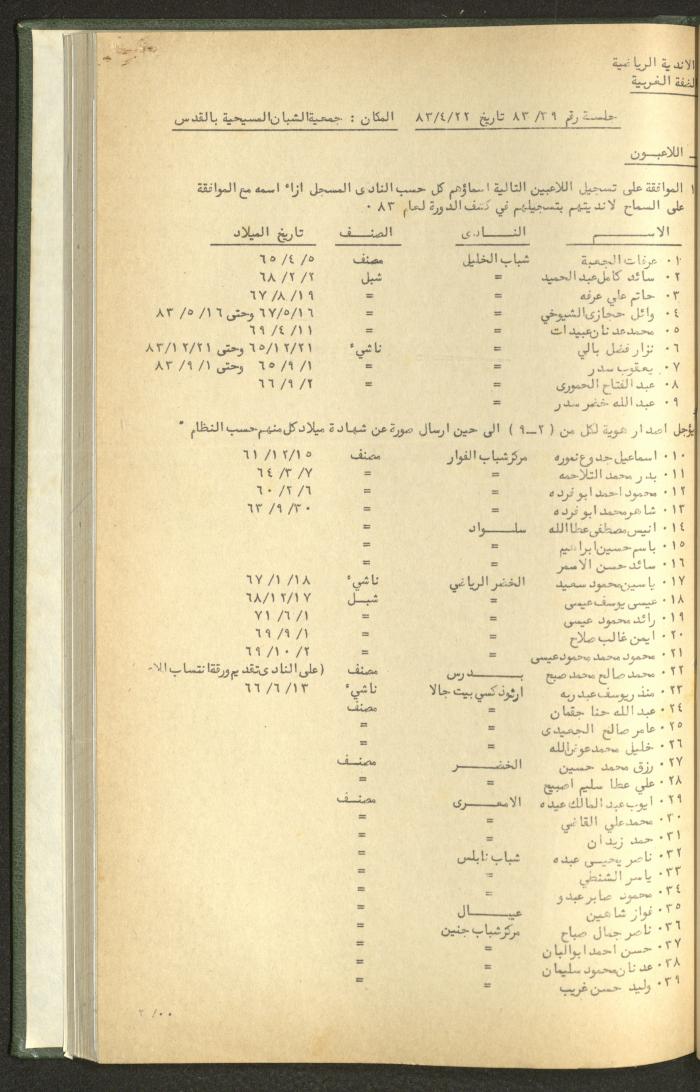 الاندية الرياضية
الضفة الغربية
جلسة رقم ٣٩/ ٨٣ تاريخ ٨٣/٤/٢٢ المكان : جمعية الشبان المسيحية بالقدس
ـ اللاعبــون
١ الموافقة على تسجيل اللاعبين التالية اسماؤهم كل حسب النادى المسجل ازاء اسمه مع الموافقة
على السماح لانديتهم بتسجيلهم في كشف الدورة لعام ٨٣ ٠
الاســـم النــادى الصنـف تاريخ الميلاد
٠١ عرفات الجعبة شباب الخليل مصنف ٥/ ٤/ ٦٥
٠٢ سائد كامل عبد الحميد = شبل ٢/ ٢/ ٦٨
٠٣ حاتم علي عرفه = = ١٩/ ٨/ ٦٧
٠٤ وائل حجازى الشيوخي = = ٦٧/٥/١٦ وحتى ١٦/ ٥/ ٨٣
٠٥ محمد عدنان عبيدات = = ١١/ ٤/ ٦٩
٠٦ نزار فضل بالي = ناشيء ٦٥/١٢/٢١ وحتى ٨٣/١٢/٢١
٠٧ يعقوب سدر = = ١/ ٩/ ٦٥ وحتى ١/ ٩/ ٨٣
٠٨ عبد الفتاح الحمورى = = ٢/ ٩/ ٦٦
٠٩ عبد الله خضر سدر = =
يؤجل اصدار هوية لكل من ( ٢ــ٩ ) الى حين ارسال صورة عن شهادة ميلاد كل منهم حسب النظام ٠
٠١٠ اسماعيل جدوع نموره مركز شباب الفوار مصنف ٦١/١٢/١٥
٠١١ بدر محمد التلاحمه = = ٧/ ٣/ ٦٤
٠١٢ محمود احمد ابو فرده = = ٦/ ٢/ ٦٠
٠١٣ شاهر محمد ابو فرده = = ٣٠/ ٩/ ٦٣
٠١٤ انيس مصطفى عطا الله سلــواد =
٠١٥ باسم حسين ابراهيم = =
٠١٦ سائد حسن الاسمر = =
٠١٧ ياسين محمود سعيد الخضر الرياضي ناشيء ١٨/ ١/ ٦٧
٠١٨ عيسى يوسف عيسى = شبـل ٦٨/١٢/١٧
٠١٩ رائد محمود عيسى = = ١/ ٦/ ٧١
٠٢٠ ايمن غالب صلاح = = ١/ ٩/ ٦٩
٠٢١ محمود محمد محمود عيسى = = ٢/ ١٠/ ٦٩
٠٢٢ محمد صالح محمد صبح بــدرس مصنف (على النادى تقديم ورقة انتساب
٠٢٣ منذر يوسف عبد ربه ارثوذكسي بيت جالا ناشيء ١٣/ ٦/ ٦٦
٠٢٤ عبد الله حنا جقمان = مصنف
٠٢٥ عامر صالح الجعيدى = =
٠٢٦ خليل محمد عوض الله = =
٠٢٧ رزق محمد حسين الخضــر مصنـف
٠٢٨ علي عطا سليم اصبيح = =
٠٢٩ ايوب عبد المالك عيده الامعـرى مصنـف
٠٣٠ محمد علي القاضي = =
٠٣١ حمد زيدان = =
٠٣٢ ناصر يحيـى عبده شباب نابلس =
٠٣٣ ياسر الشنطي = =
٠٣٤ محمود صابر عبدو = =
٠٣٥ فواز شاهين عيبــال =
٠٣٦ ناصر جمال صباح مركز شباب جنين =
٠٣٧ حسن احمد ابو البان = =
٠٣٨ عدنان محمود سليمان = =
٠٣٩ وليد حسن غريب = =
٢ /٠٠